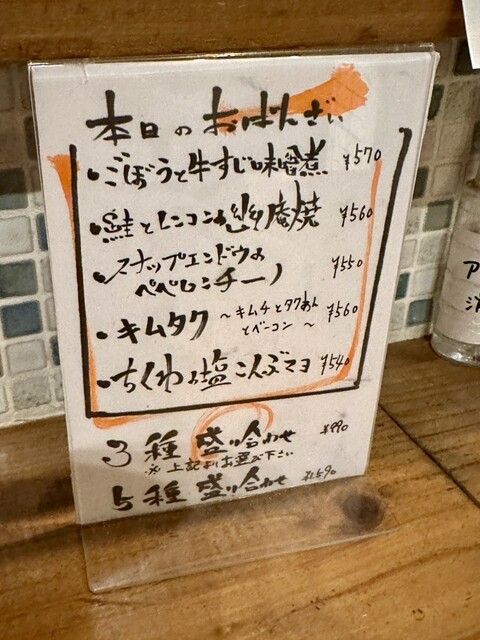 本日のおばんざい
・ごぼうと牛すじ味噌煮 ¥570
・鮭とレンコンの幽庵焼 ¥560
・スナップエンドウの
ペペロンチーノ ¥550
・キムタク ～キムチとタクあん
とベーコン～ ¥560
・ちくわの塩こんぶマヨ ¥540
3種 盛り合わせ ¥990
※上記よりお選び下さい
5種 盛り合わせ ¥1,590
ア